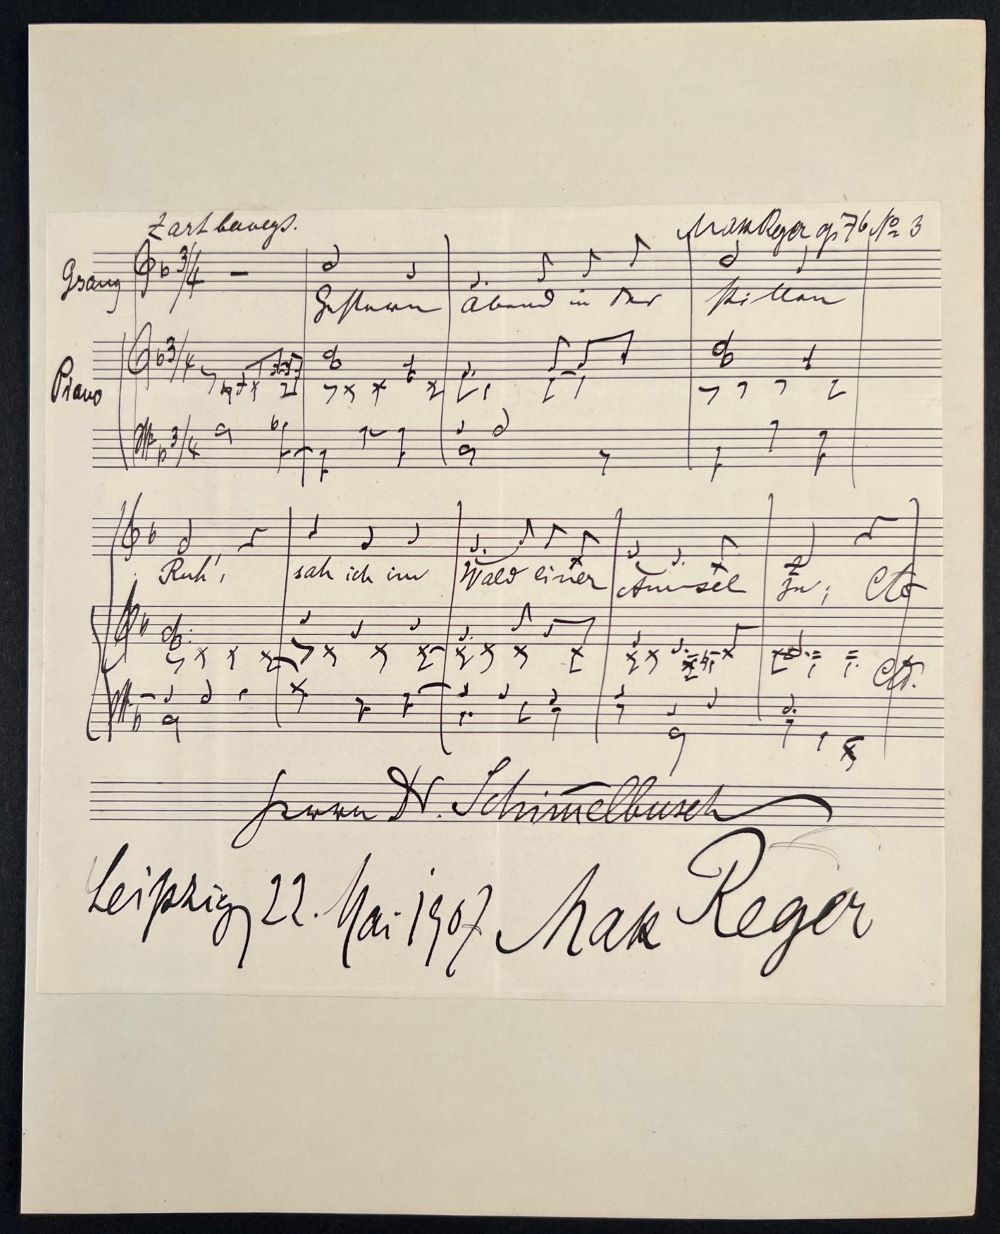 Zart bewegt.
Max Reger op 76 No 3
Gsang
Gestern Abend in der stillen
Piano
Ruh', sah ich im Wald einer Amsel zu; Etc
Etc.
Herrn Dr. Schimmelbusch
Leipzig 22. Mai 1907 Max Reger